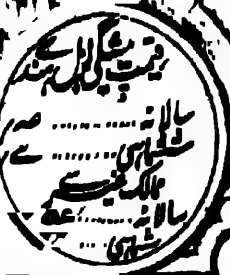 قیمت پیشگی اہل ہند سے
سالانہ ........
ششماہی ........ سے
ممالک غیر سے
سالانہ ........
ششماہی ....